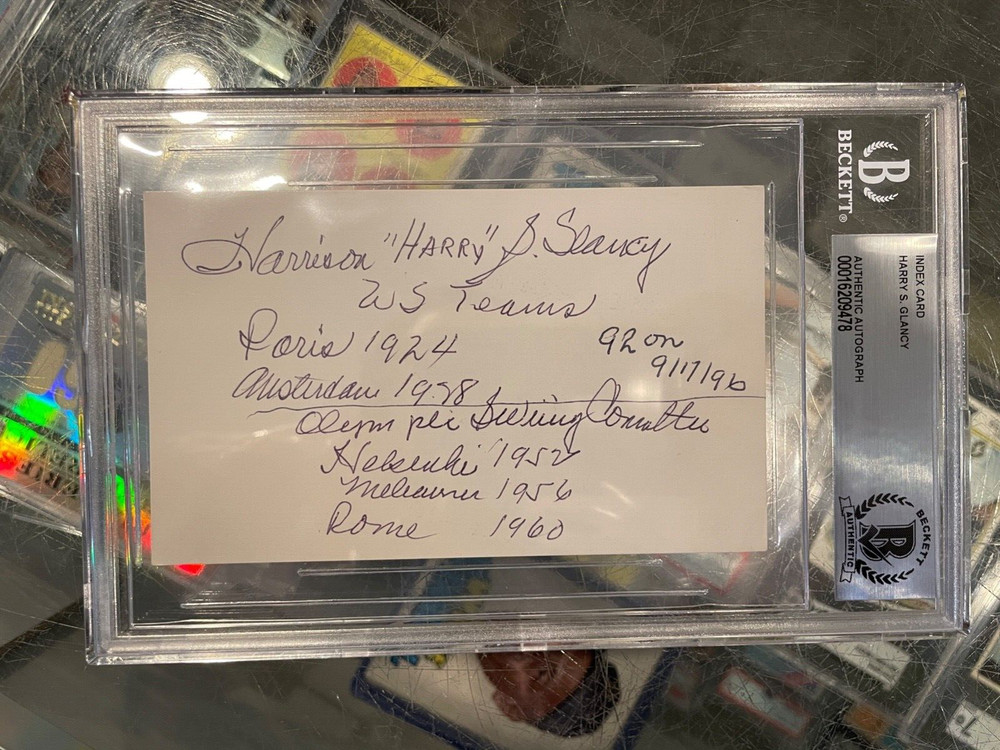 Harrison "HARRY" S. Glancy
US Teams
Paris 1924
92 on
9/17/96
Amsterdam 1928
Olympic Swimming Committee
Helsinki 1952
Melbourne 1956
Rome 1960
B
BECKETT®
INDEX CARD
HARRY S. GLANCY
AUTHENTIC AUTOGRAPH
00016209478
BECKETT
B
AUTHENTIC